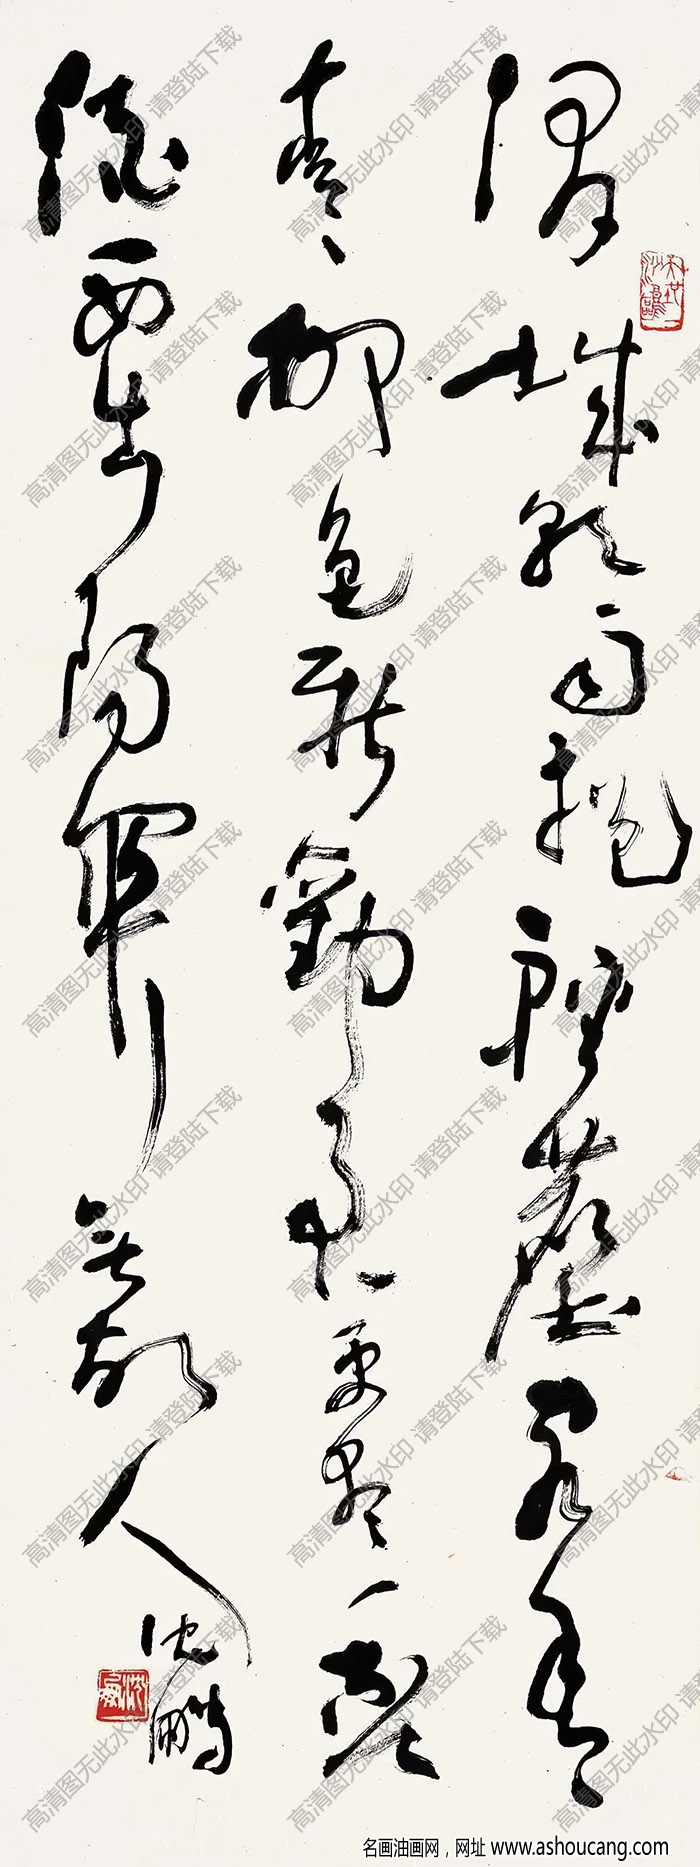 渭城朝雨浥輕塵客舍
青々柳色新勸君更盡一杯
酒西出陽關無故人
沈鵬
高清图无此水印 请登陆下载
名画油画网，网址 www.ashoucang.com